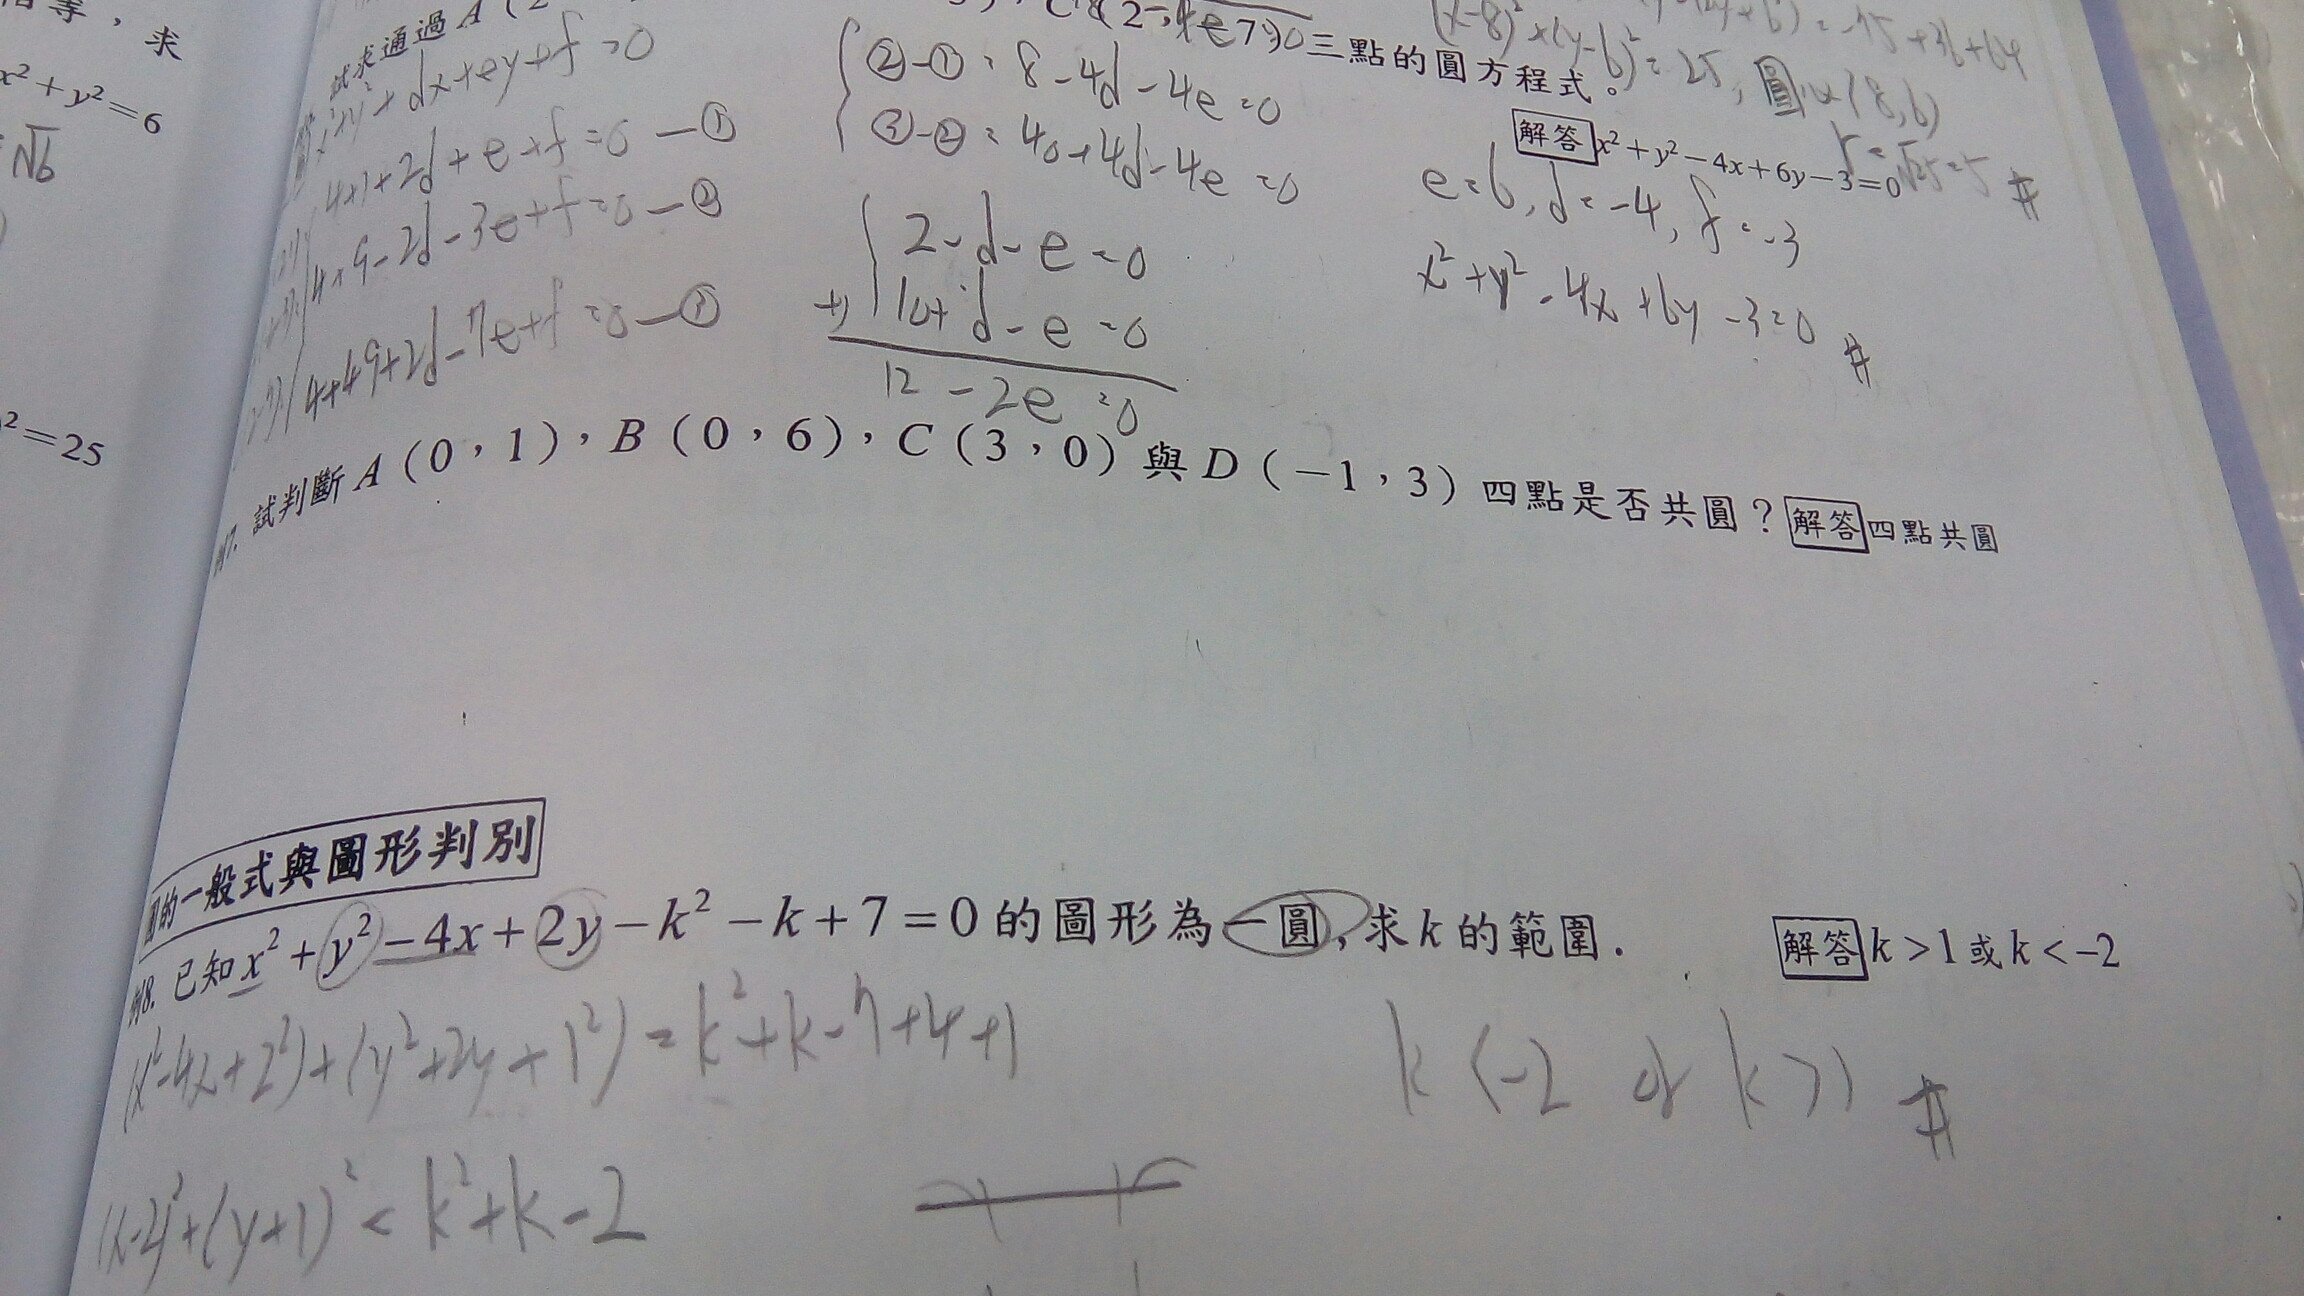 相等，求
x²+y²=6
√6
²=25
試求通過A(2
三點的圓方程式。
x²+y²+dx+ey+f=0
4+1+2d+e+f=0—①
4+9-2d-3e+f=0—②
4+49+2d-7e+f=0—③
②-①：8-4d-4e=0
③-②：40+4d-4e=0
2-d-e=0
+) 10+d-e=0
12-2e=0
(x-8)²+(y-6)²=25, 圓心(8,6)
r=√25=5 #
解答 x²+y²-4x+6y-3=0
e=6, d=-4, f=-3
x²+y²-4x+6y-3=0 #
例7. 試判斷A(0，1)，B(0，6)，C(3，0)與D(-1，3)四點是否共圓？ 解答 四點共圓
圓的一般式與圖形判別
例8. 已知x²+y²-4x+2y-k²-k+7=0的圖形為一圓，求k的範圍. 解答 k>1或k<-2
(x²-4x+2²)+(y²+2y+1²)=k²+k-7+4+1
k<-2 or k>1 #
(x-2)²+(y+1)²=k²+k-2